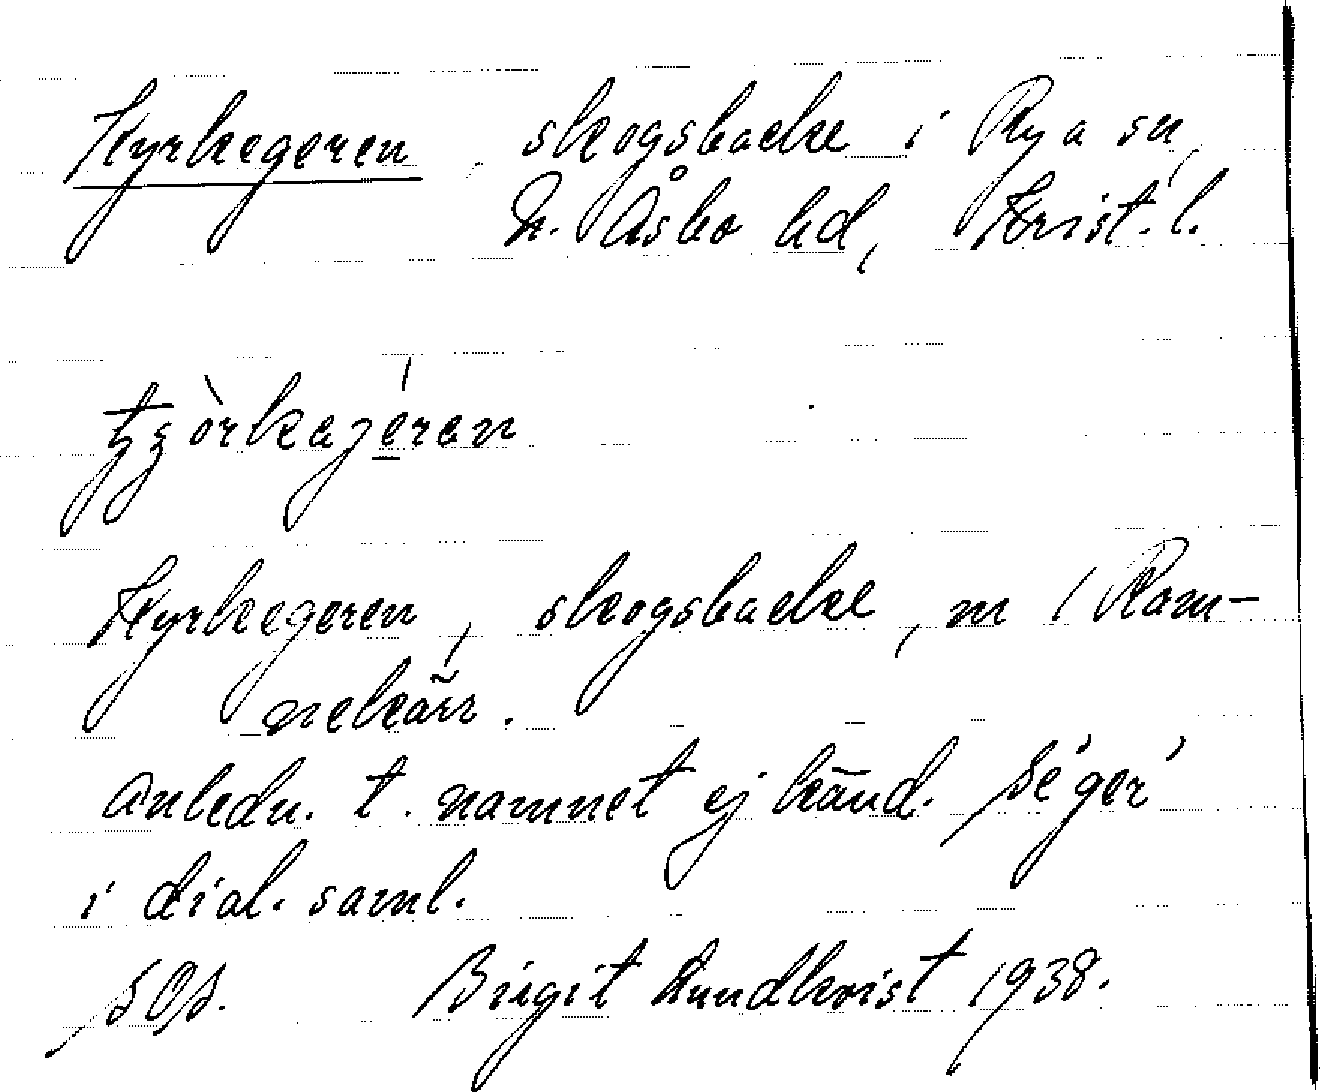 Kyrkegeren, skogsbacke i Rya sn,
N. Åsbo hd, Krist. l.
Kyrkegeren, skogsbacke, m / Ram-
nekärr.
Anledn. t. namnet ej känd. Se 'ger'
i dial. saml.
SOS. Birgit Lundkvist 1938.